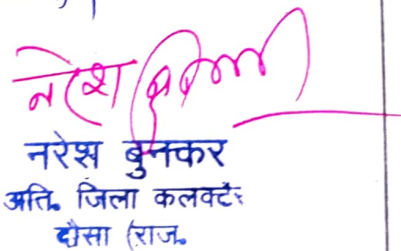 नरेश
नरेश बुनकर
अति. जिला कलक्टर
दौसा (राज.